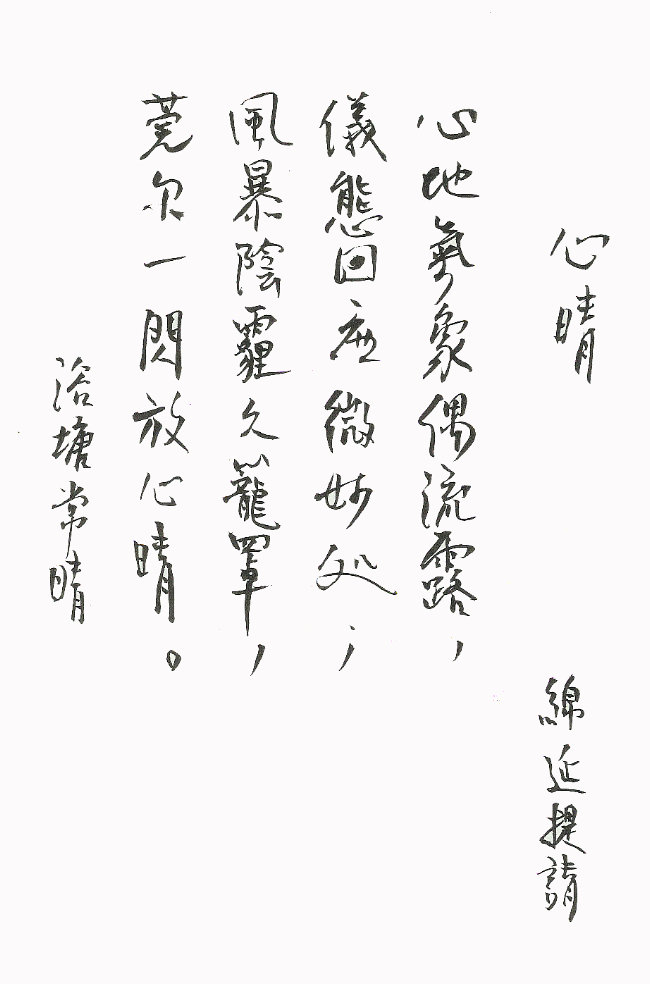 心晴
綿延提請
心地氣象偶流露，
儀態回应微妙处；
風暴陰霾久籠罩，
莞尔一閃放心晴。
浴塘常晴